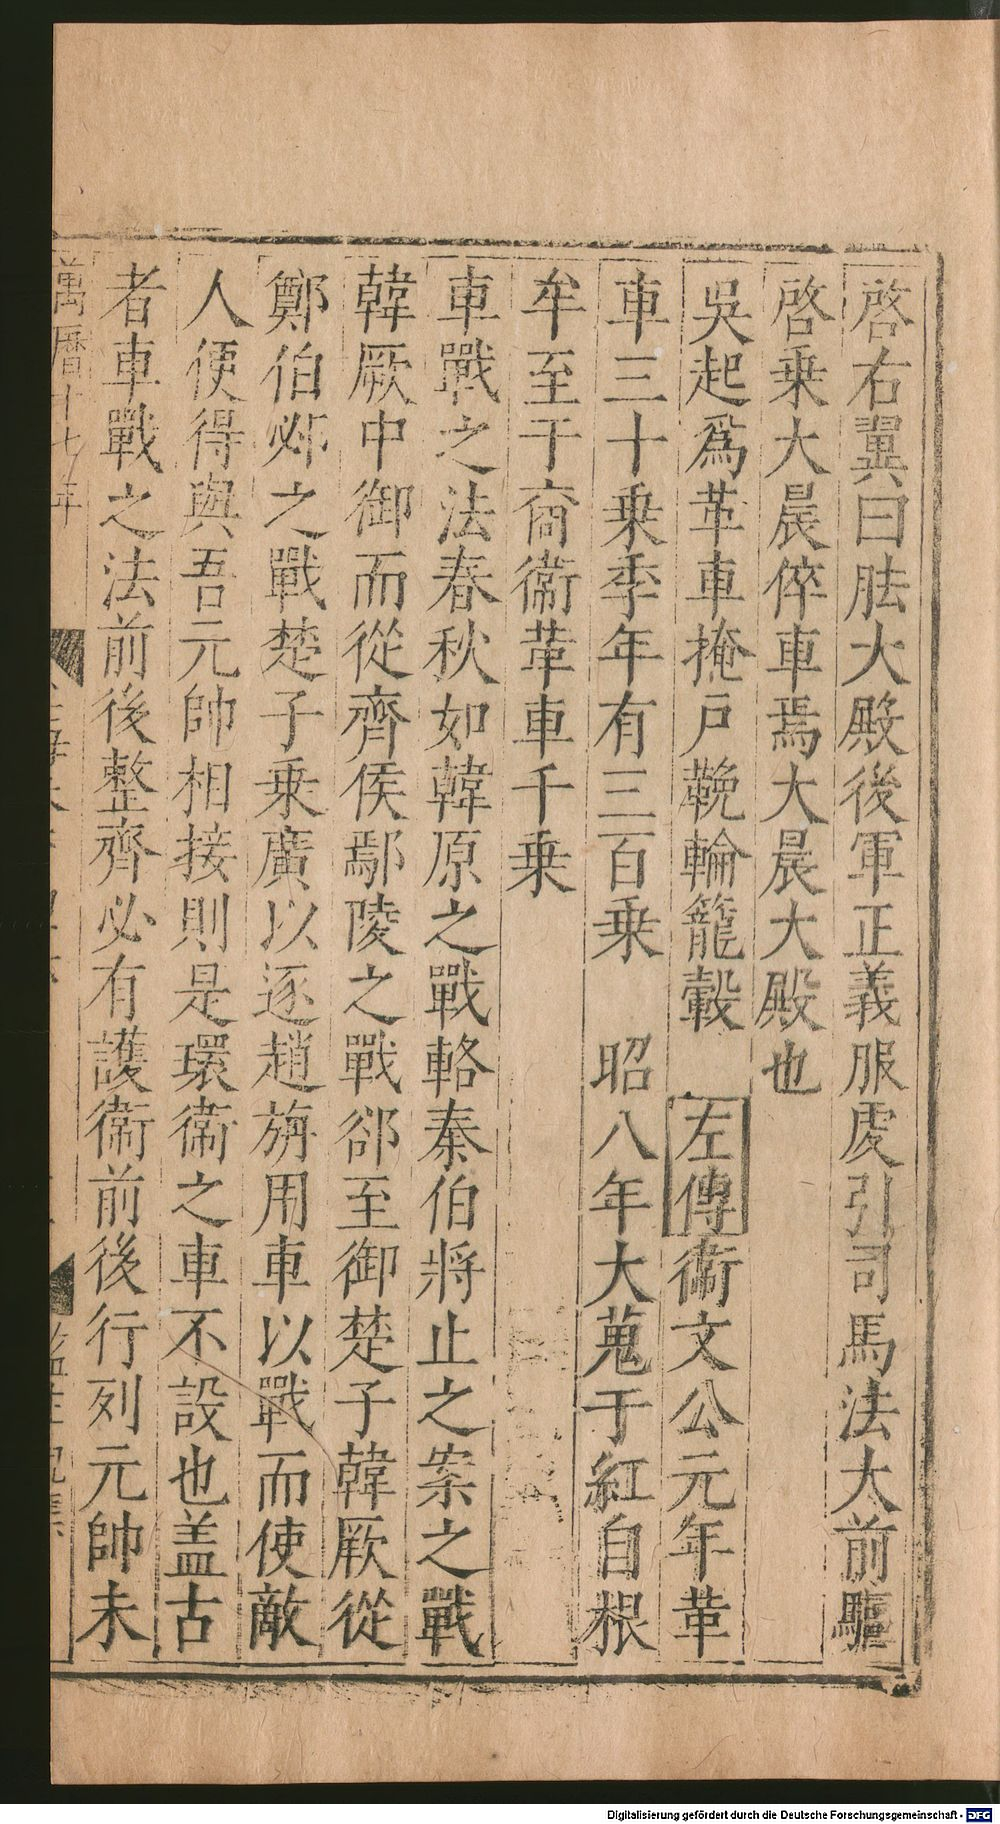 啓右翼曰胠大殿後軍正義服虔引司馬法大前驅
啓乗大晨倅車焉大晨大殿也
吳起爲革車掩戸鞔輪籠轂 左傳衛文公元年革
車三十乗季年有三百乗 昭八年大蒐于紅自根
牟至于商衛革車千乗
車戰之法春秋如韓原之戰輅秦伯將止之案之戰
韓厥中御而從齊侯鄢陵之戰郤至御楚子韓厥從
鄭伯邲之戰楚子乗廣以逐趙旃用車以戰而使敵
人便得與吾元帥相接則是環衛之車不設也盖古
者車戰之法前後整齊必有護衛前後行列元帥未
萬曆十七年
Digitalisierung gefördert durch die Deutsche Forschungsgemeinschaft - DFG